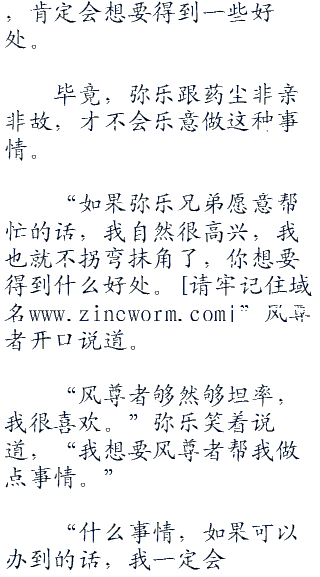 ，肯定会想要得到一些好
处。
毕竟，弥乐跟药尘非亲
非故，才不会乐意做这种事
情。
“如果弥乐兄弟愿意帮
忙的话，我自然很高兴，我
也就不拐弯抹角了，你想要
得到什么好处。[请牢记住域
名www.zincworm.com|”风尊
者开口说道。
“风尊者够然够坦率，
我很喜欢。”弥乐笑着说
道，“我想要风尊者帮我做
点事情。”
“什么事情，如果可以
办到的话，我一定会